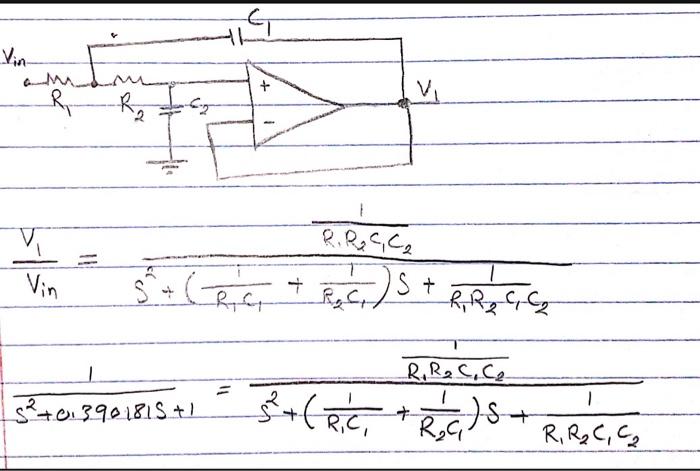 C₁
Vin
R₁ R₂ C₂ + − V₁
V₁/Vin = (1/(R₁R₂C₁C₂)) / (S² + (1/(R₁C₁) + 1/(R₂C₁))S + 1/(R₁R₂C₁C₂))
1/(S²+0.390181S+1) = (1/(R₁R₂C₁C₂)) / (S² + (1/(R₁C₁) + 1/(R₂C₁))S + 1/(R₁R₂C₁C₂))